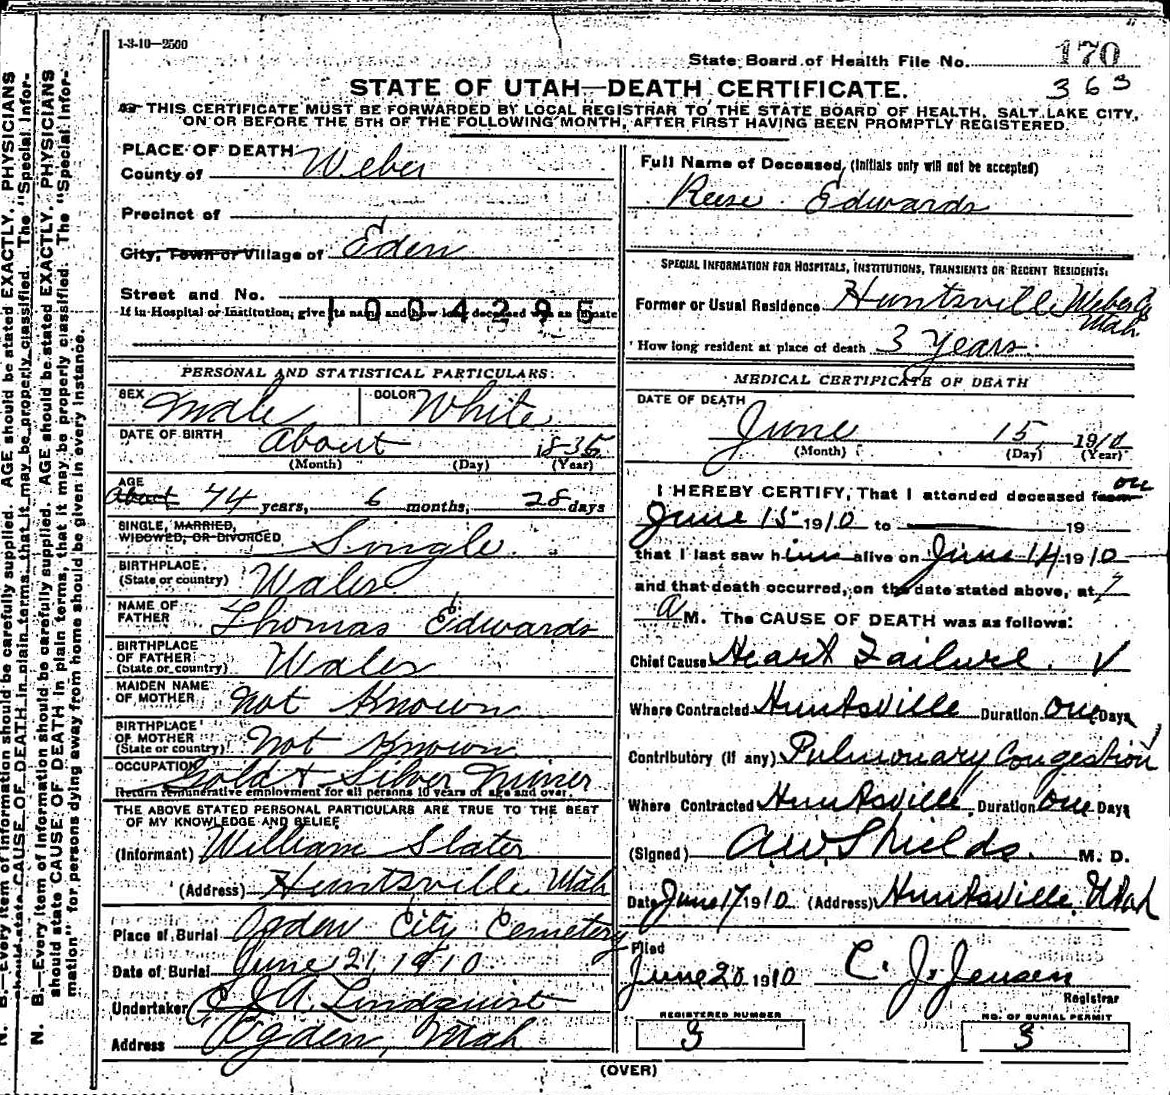 1-3-10—2500
State Board of Health File No. 170
363
STATE OF UTAH—DEATH CERTIFICATE.
THIS CERTIFICATE MUST BE FORWARDED BY LOCAL REGISTRAR TO THE STATE BOARD OF HEALTH, SALT LAKE CITY,
ON OR BEFORE THE 5TH OF THE FOLLOWING MONTH, AFTER FIRST HAVING BEEN PROMPTLY REGISTERED.
PLACE OF DEATH
County of Weber
Precinct of
City, Town or Village of Eden
Street and No.
1004295
If in Hospital or Institution, give its name and how long deceased was an inmate
PERSONAL AND STATISTICAL PARTICULARS:
SEX Male COLOR White
DATE OF BIRTH About 1835
(Month) (Day) (Year)
AGE
About 74 years, 6 months, 28 days
SINGLE, MARRIED,
WIDOWED, OR DIVORCED Single
BIRTHPLACE.
(State or country) Wales
NAME OF
FATHER Thomas Edwards
BIRTHPLACE
OF FATHER
(State or country) Wales
MAIDEN NAME
OF MOTHER Not Known
BIRTHPLACE
OF MOTHER
(State or country) Not Known
OCCUPATION Gold & Silver Miner
Return remunerative employment for all persons 10 years of age and over.
THE ABOVE STATED PERSONAL PARTICULARS ARE TRUE TO THE BEST
OF MY KNOWLEDGE AND BELIEF
(Informant) William Slater
(Address) Huntsville Utah
Place of Burial Ogden City Cemetery
Date of Burial June 21, 1910
Undertaker C J A Lindquist
Address Ogden, Utah
Full Name of Deceased, (Initials only will not be accepted)
Reese Edwards
SPECIAL INFORMATION FOR HOSPITALS, INSTITUTIONS, TRANSIENTS OR RECENT RESIDENTS:
Former or Usual Residence Huntsville Weber Co
Utah
How long resident at place of death 3 Years
MEDICAL CERTIFICATE OF DEATH
DATE OF DEATH
June 15 1910
(Month) (Day) (Year)
I HEREBY CERTIFY, That I attended deceased from on
June 15 1910 to 19
that I last saw him alive on June 14 1910
and that death occurred, on the date stated above, at 7
a M. The CAUSE OF DEATH was as follows:
Chief Cause Heart Failure.
Where Contracted Huntsville Duration one Days
Contributory (if any) Pulmonary Congestion
Where Contracted Huntsville Duration one Days
(Signed) A.W. Shields. M. D.
Date June 17 1910 (Address) Huntsville, Utah
Filed
June 20 1910 C. J. Jensen
Registrar
REGISTERED NUMBER
3
NO. OF BURIAL PERMIT
3
(OVER)
N. B.—Every item of information should be carefully supplied. AGE should be stated EXACTLY. PHYSICIANS
should state CAUSE OF DEATH in plain terms, that it may be properly classified. The "Special Infor-
N. B.—Every item of information should be carefully supplied. AGE should be stated EXACTLY. PHYSICIANS
should state CAUSE OF DEATH in plain terms, that it may be properly classified. The "Special Infor-
mation" for persons dying away from home should be given in every instance.